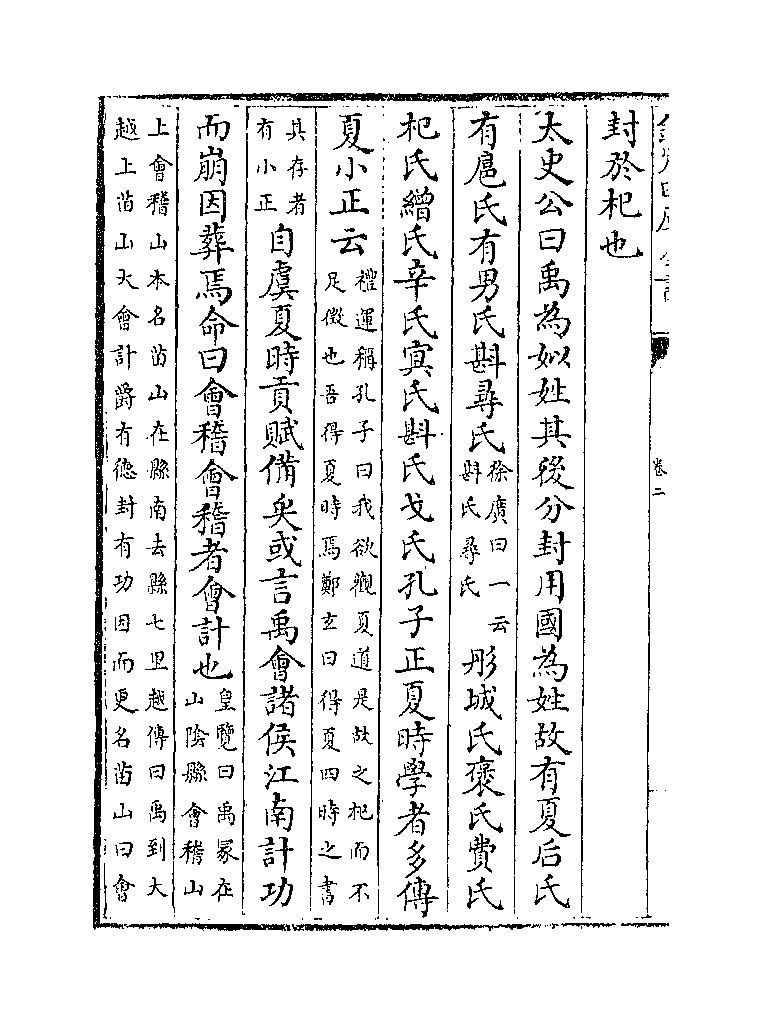 卷二
封於杞也
太史公曰禹為姒姓其後分封用國為姓故有夏后氏
有扈氏有男氏斟尋氏徐廣曰一云斟氏尋氏彤城氏褒氏費氏
杞氏繒氏辛氏㝠氏斟氏戈氏孔子正夏時學者多傳
夏小正云禮運稱孔子曰我欲觀夏道是故之杞而不足徵也吾得夏時焉鄭玄曰得夏四時之書
其存者有小正自虞夏時貢賦備矣或言禹會諸侯江南計功
而崩因葬焉命曰會稽會稽者會計也皇覽曰禹冢在山陰縣會稽山
上會稽山本名苗山在縣南去縣七里越傳曰禹到大越上苗山大會計爵有德封有功因而更名苗山曰會